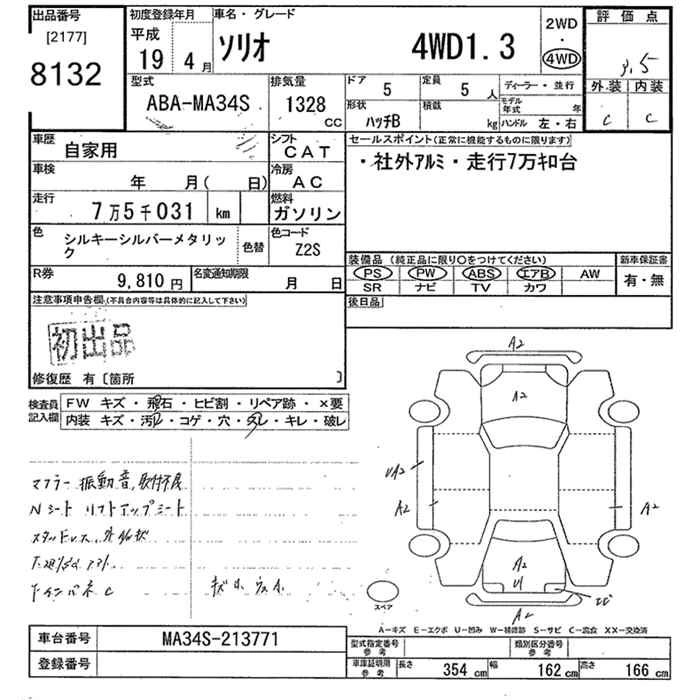 出品番号
[2177]
8132
初度登録年月
平成
19 4月
車名・グレード
ソリオ 4WD1.3
2WD
・
4WD
評価点
3.5
外装 内装
C C
型式
ABA-MA34S
排気量
1328
CC
ドア
5
定員
5人
ディーラー・並行
形状
ハッチB
積載
kg
モデル年式 年
ハンドル 左・右
車歴
自家用
シフト
CAT
セールスポイント(正常に機能するものに限ります)
・社外アルミ・走行7万キロ台
車検
年 月( 日)
冷房
AC
走行
7万5千031 km
燃料
ガソリン
色
シルキーシルバーメタリック
色替
色コード
Z2S
装備品 (純正品に限り○をつけてください)
PS PW ABS エアB AW
SR ナビ TV カワ
新車保証書
有・無
R券
9,810円
名変通知期限
月 日
後日品
注意事項申告欄(不具合内容等は具体的に記入して下さい)
初出品
修復歴 有〔箇所 〕
検査員記入欄
FW キズ・飛石・ヒビ割・リペア跡・×要
内装 キズ・汚レ・コゲ・穴・スレ・キレ・破レ
マフラー振動音、取付不良
Nシート リフトアップシート
A2
A2
UA2
A2
A2
A2
U1
A2
スペア
A-キズ E-エクボ U-凹み W-補修跡 S-サビ C-腐食 XX-交換済
車台番号
MA34S-213771
登録番号
型式指定番号
参考
類別区分番号
参考
車庫証明用
参考
長さ 354 cm
幅 162 cm
高さ 166 cm